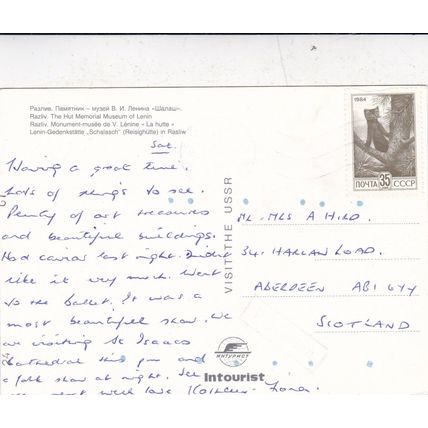 Разлив. Памятник – музей В. И. Ленина «Шалаш».
Razliv. The Hut Memorial Museum of Lenin
Razliv. Monument-musée de V. Lénine « La hutte »
Lenin-Gedenkstätte „Schalasch“ (Reisighütte) in Rasliw
Sat.
Having a great time.
Lots of things to see.
Plenty of art treasures
and beautiful buildings.
Had caviar last night. Didn't
like it very much. Went
to the ballet. It was a
most beautiful show. We
are visiting St Isaacs
Cathedral this pm and
a folk show at night. See
you next week love
VISIT THE USSR
1984
ПОЧТА 35 СССР
Mr. Mrs A Hird.
34. Harlaw Road.
Aberdeen AB1 6YY
Scotland
ИНТУРИСТ
Intourist